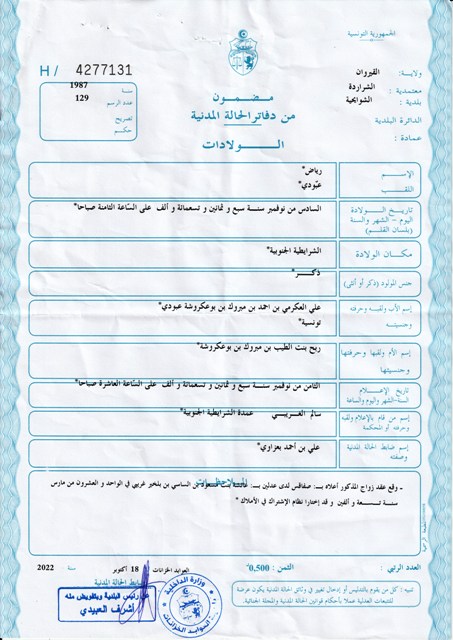 الجمهورية التونسية
ولاية : القيروان
معتمدية : الشراردة
بلدية : الشوايحية
الدائرة البلدية
عمادة :
H / 4277131
سنة 1987
عدد الرسم 129
تصريح
حكم
مضمون
من دفاتر الحالة المدنية
الولادات
الإسم
رياض*
اللقب
عبّودي*
تاريخ الولادة
اليوم - الشهر والسنة
(بلسان القلم)
السادس من نوفمبر سنة سبع و ثمانين و تسعمائة و ألف على السّاعة الثامنة صباحا*
مكان الولادة
الشرايطية الجنوبية*
جنس المولود (ذكر أو أنثى)
ذكر*
إسم الأب ولقبه وحرفته
وجنسيته
علي العكرمي بن احمد بن مبروك بن بوعكروشة عبودي*
تونسية*
إسم الأم ولقبها وحرفتها
وجنسيتها
ربح بنت الطيب بن مبروك بن بوعكروشة*
تاريخ الإعلام
السنة-الشهر واليوم والساعة
الثامن من نوفمبر سنة سبع و ثمانين و تسعمائة و ألف على السّاعة العاشرة صباحا*
إسم من قام بالإعلام ولقبه
وحرفته أو المحكمة
سالم الغريبي عمدة الشرايطية الجنوبية*
إسم ضابط الحالة المدنية
وصفته
علي بن أحمد بعزاوي*
الملاحظات
- وقع عقد زواج المذكور أعلاه بـ: صفاقس لدى عدلين بـ: بنت مسعود بن الساسي بن بلخير غريبي في الواحد و العشرون من مارس
سنة تسعة و ألفين و قد إختارا نظام الإشتراك في الأملاك *
العدد الرتبي :
الثمن : 0,500د
العوابد الخزانات 18 أكتوبر سنة 2022
ضابط الحالة المدنية
تنبيه : كل من يقوم بالتدليس أو إدخال تغيير في وثائق الحالة المدنية يكون عرضة
للتتبعات العدلية عملا بأحكام قوانين الحالة المدنية والمجلة الجنائية.
عن رئيس البلدية وبتفويض منه
أشرف العبيدي
وزارة الداخلية
العوابد الخزانات